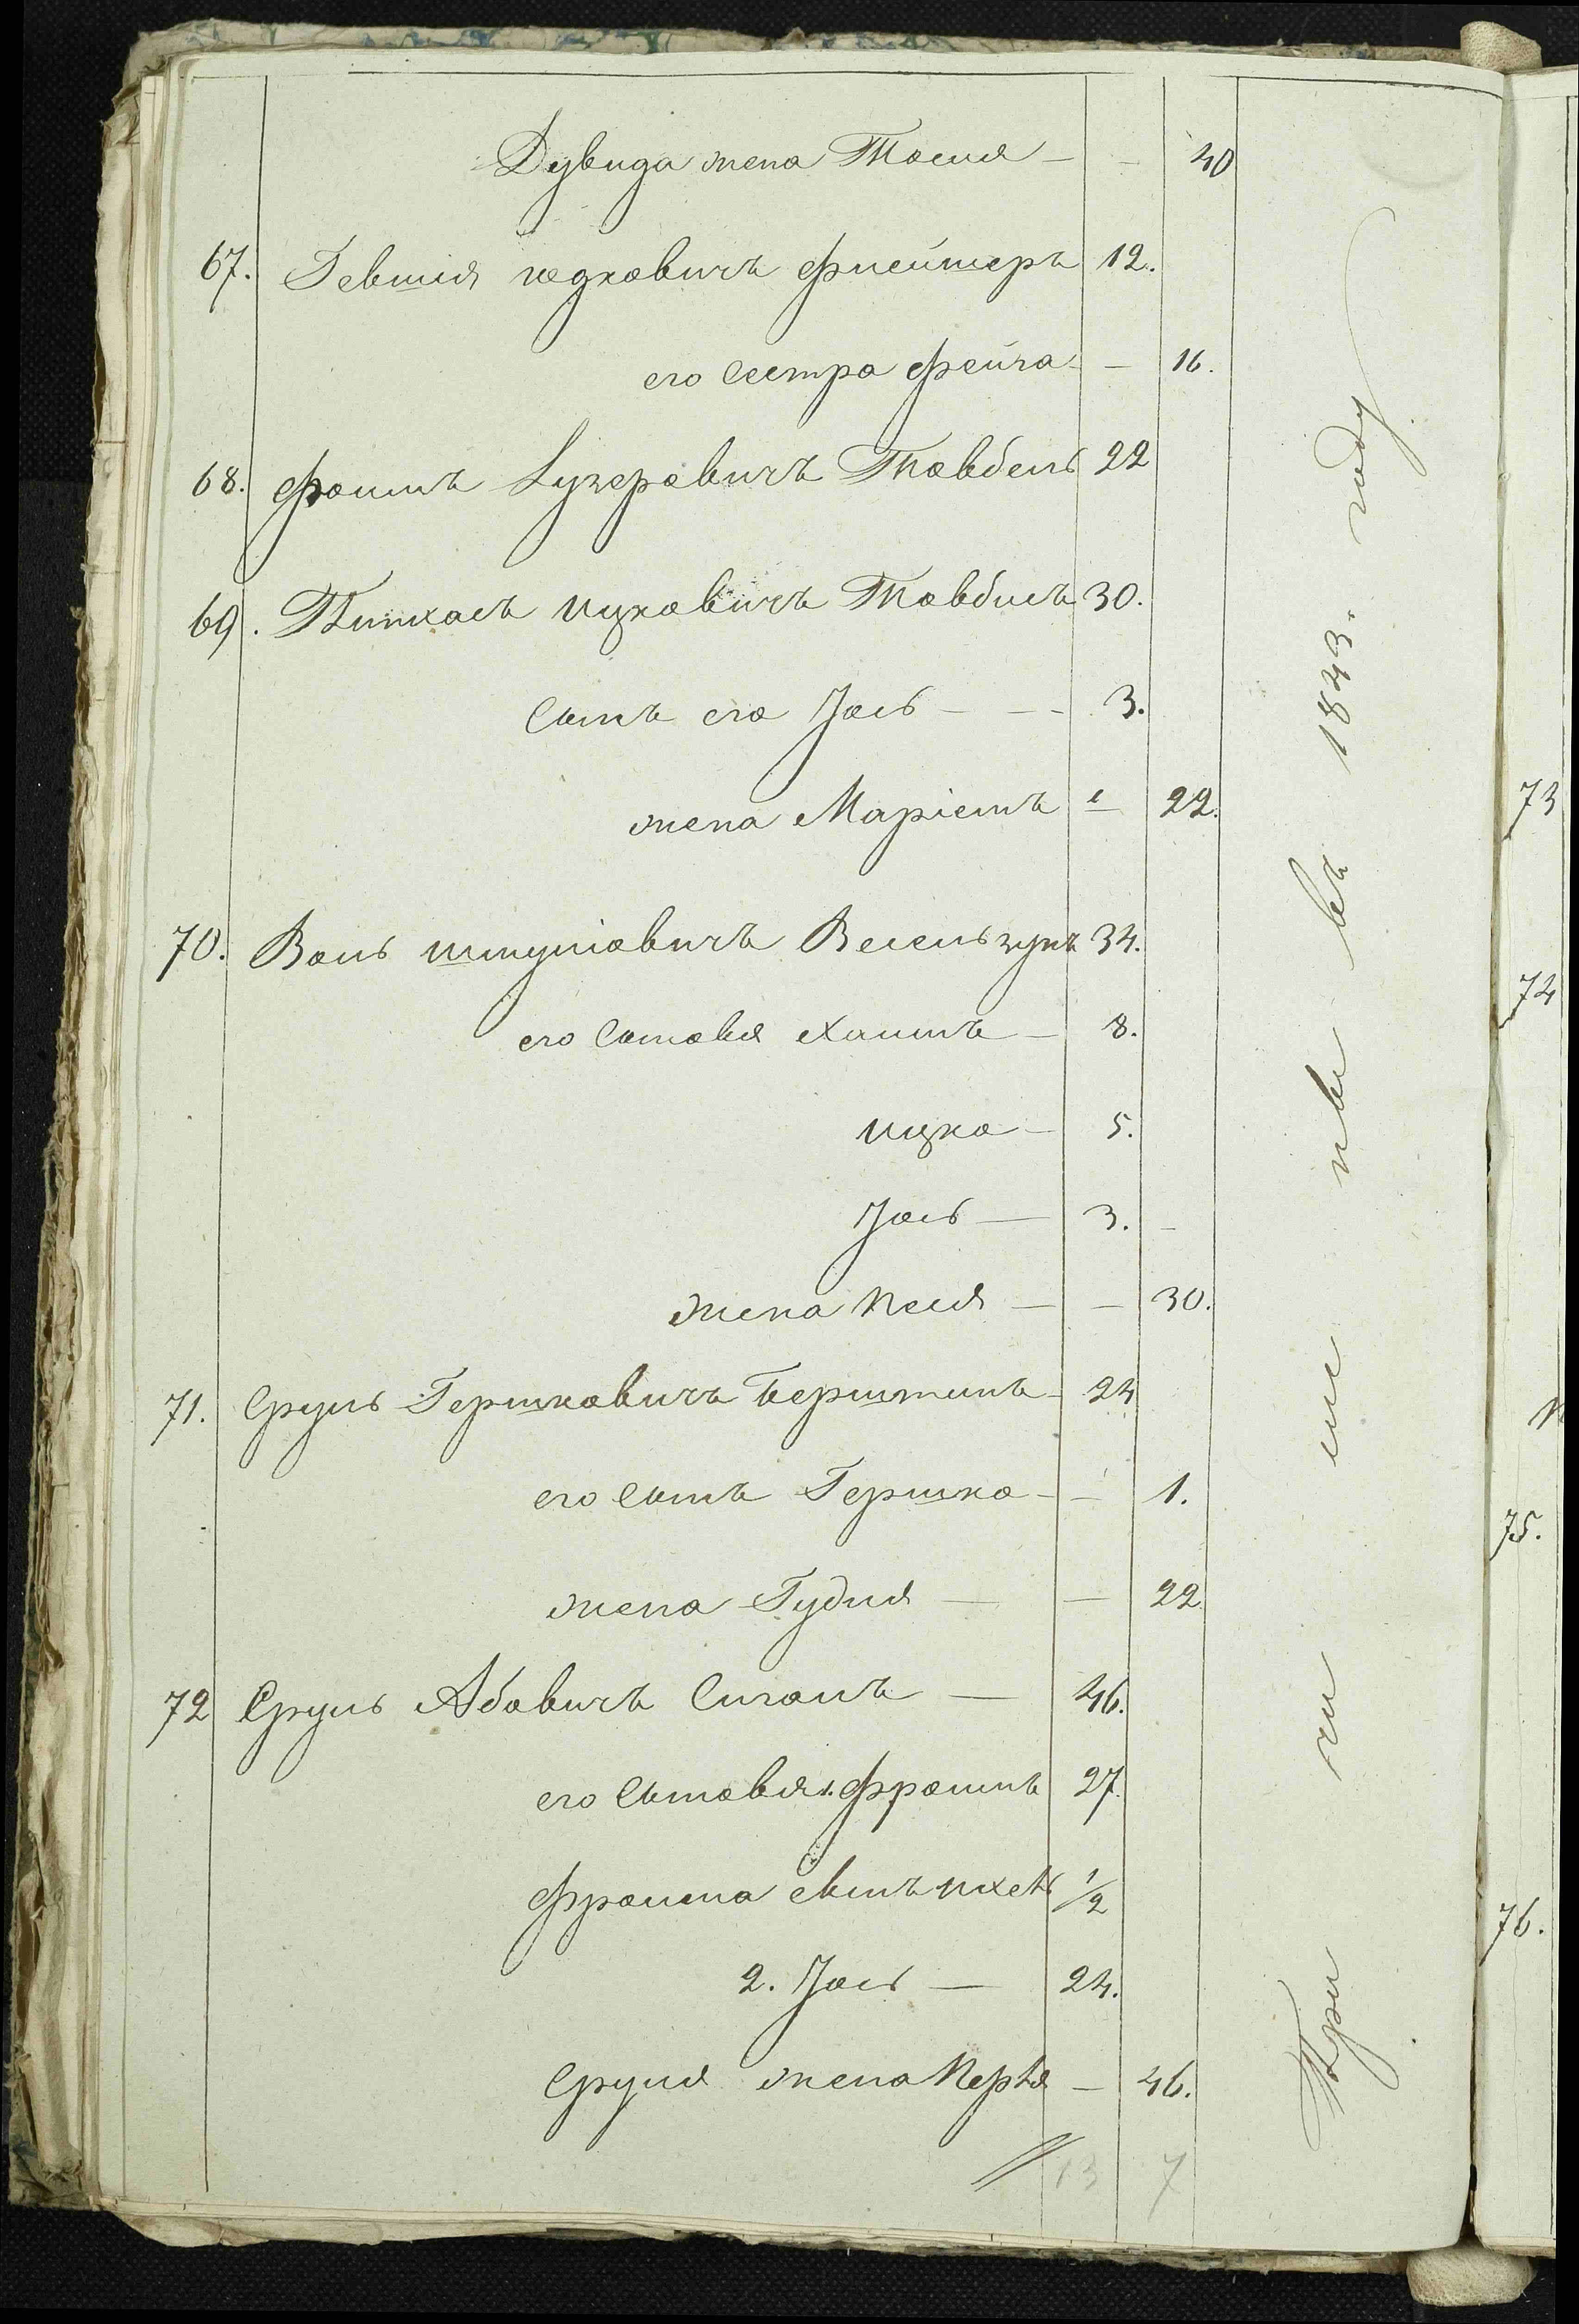 Дувида жена Тойся — — 40
67. Гевшія юдковичъ Флейшеръ 12.
его сестра Фейга — — 16.
68. Фроимъ Лузеровичъ Товбель 22
69. Пинхасъ ицковичъ Товбисъ 30.
Сынъ его Іось — — 3.
жена Маріемъ — 22.
70. Воль шмулiовичъ Весельзунъ 34.
его Сыновья Хаимъ — 8.
ицко — 5.
Іось — 3. —
жена Песя — — 30.
71. Сруль Гершковичъ Берштинъ — 24
его Сынъ Гершко — — 1.
жена Гудля — — 22
72 Сруль Абовичъ Сиганъ — 46.
его Сыновья 1. Фроимъ 27.
Фроима Сынъ ихель 1/2
2. Іось — 24.
Сруля жена Перля — 46.
13 7
При чи сле ны въ 1843. году
73
74
75.
76.